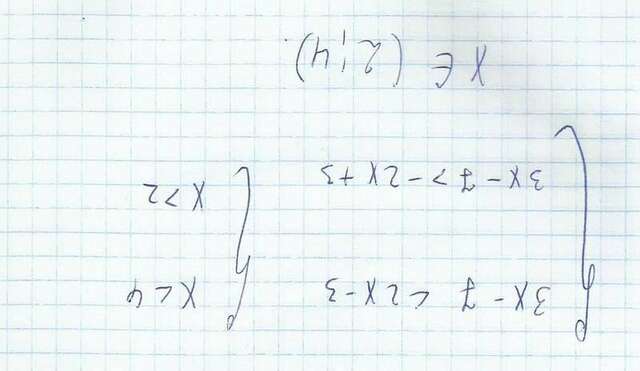 { 3x - 7 < 2x - 3 { x < 4
3x - 7 > -2x + 3 x > 2
x ∈ (2; 4)